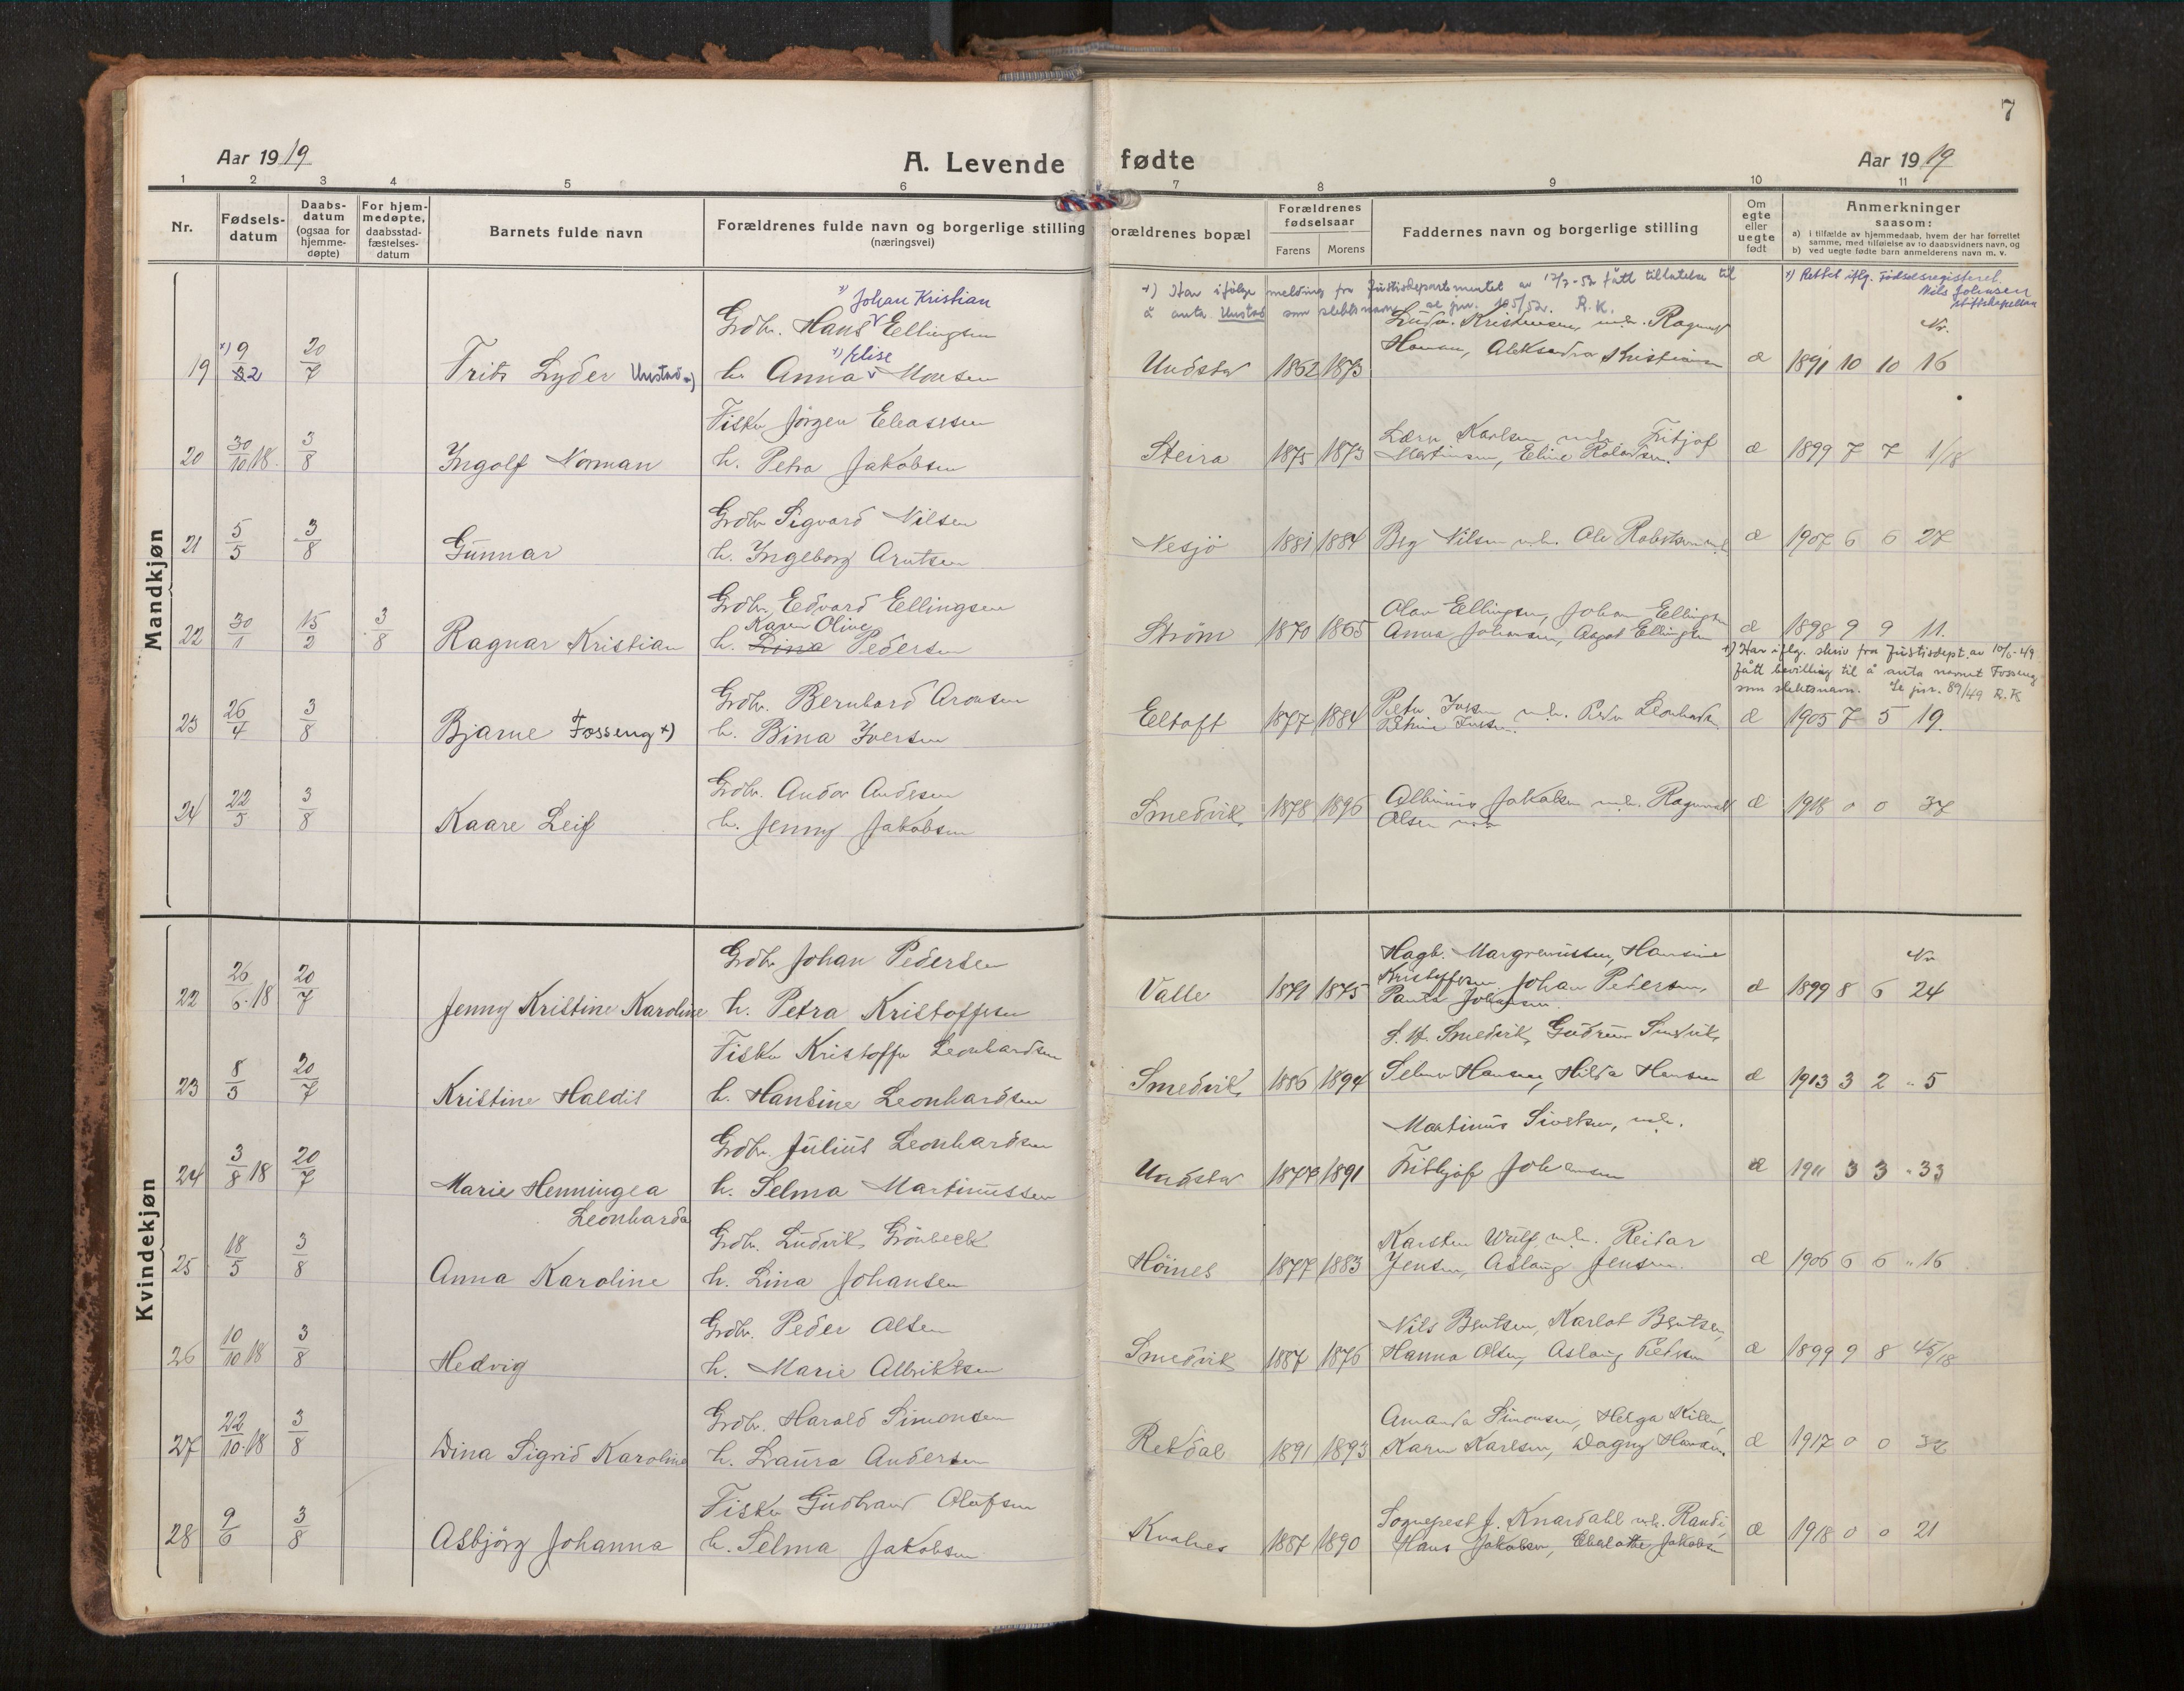 7
Aar 1919
A. Levende fødte
Aar 1919
1 2 3 4 5 6 7 8 9 10 11
Nr.
Fødsels-datum
Daabs-datum (ogsaa for hjemme-døpte)
For hjem-medøpte, daabsstad-fæstelses-datum
Barnets fulde navn
Forældrenes fulde navn og borgerlige stilling (næringsvei)
orældrenes bopæl
Forældrenes fødselsaar
Farens Morens
Faddernes navn og borgerlige stilling
Om egte eller uegte født
Anmerkninger
saasom:
a) i tilfælde av hjemmedaab, hvem der har forrettet samme, med tilføielse av to daabsvidners navn, og
b) ved uegte fødte barn anmelderens navn m. v.
x) Har ifølge melding fra Justisdepartementet av 17/3-52 fått tillatelse til
å anta Unstad som slektsnavn, se jnr. 105/52. R.K.
x) Rettet iflg. Fødselsregisteret.
Nils Johnsen
stiftskapellan
Mandkjøn
x) Johan Kristian
Grdbr. Hans Ellingsen
x) Elise
19 9/2 20/7 Frits Lyder Unstad x) h. Anna Monsen Undstad 1862 1873 Ludv. Kristensen, m.h. Ragnvald
Hansen, Aleksandra Kristiansen æ 1891 10 10 Nr. 16
Fisker Jørgen Eleasesen
20 30/10 18. 3/8 Ingolf Norman h. Petra Jakobsen Steira 1875 1873 Lærer Karlsen m.h. Fritjof
Martinsen, Eline Rolandsen. æ 1899 7 7 1/18
Grdbr Sigvard Nilsen
21 5/5 3/8 Gunnar h. Ingeborg Arntsen Nesjö 1881 1884 Berg Nilsen m.h. Ole Robertsen m.h. æ 1907 6 6 27
Grdbr. Edvard Ellingsen
Karen Olive
22 30/1 15/2 3/8 Ragnar Kristian h. Lina Pedersen Ström 1870 1865 Olav Ellingsen, Johan Ellingsen
Anna Johansen, Asgot Ellingsen æ 1898 9 9 11.
x) Har iflg. skriv fra Justisdept. av 10/6-49
fått bevilling til å anta navnet Fosseng
som slektsnavn. Se jnr. 89/49 R.K
Grdbr. Bernhard Aronsen
23 26/4 3/8 Bjarne Fosseng x) h. Bina Iversen Eltoft 1877 1884 Peter Iversen m.h. Peder Leonhardsen
æ 1905 7 5 19.
Grdbr. Andor Andersen
24 22/5 3/8 Kaare Leif h. Jenny Jakobsen Smedvik 1878 1896 Albinus Jakobsen m.h. Ragnvald
Olsen m.h. æ 1918 0 0 37
Kvindekjøn
Grdbr Johan Pedersen
22 26/6 18 20/7 Jenny Kristine Karoline h. Petra Kristoffersen Valle 1871 1875 Hagb. Margremissen, Hansine
Kristoffersen Johan Pedersen,
Johansen æ 1899 8 6 Nr 24
Fisker Kristoffer Leonhardsen
23 8/3 20/7 Kristine Haldis h. Hansine Leonhardsen Smedvik 1886 1894 Smedvik, Gudrun Smedvik,
Selma Hansen, Hilda Hansen æ 1913 3 2 " 5
Grdbr. Julius Leonhardsen
24 3/8 18 20/7 Marie Henningea
Leonharda h. Selma Martinussen Undstad 1877 1891 Martinus Sivertsen, m.h.
Fritjof Johansen æ 1911 3 3 " 33
Grdbr. Ludvik Grönbeck
25 18/5 3/8 Anna Karoline h. Lina Johansen Höines 1877 1883 Karsten Wulf m.h. Reidar
Jensen, Aslaug Jensen. æ 1906 6 6 " 16
Grdbr. Peder Olsen
26 10/10 18 3/8 Hedvig h. Marie Albriktsen Smedvik 1887 1876 Nils Bentsen, Karlot Bentsen,
Hanna Olsen, Aslaug Pedersen æ 1899 9 8 45/18
Grdbr. Harald Simonsen
27 22/10 18 3/8 Dina Sigrid Karoline h. Laura Andersen Rekdal 1891 1893 Amanda Simonsen, Helga Kilen,
Karen Karlsen, Dagny Hansen. æ 1917 0 0 37
Fisker Gudbrand Olufsen
28 9/6 3/8 Asbjörg Johanna h. Selma Jakobsen Kvalnes 1887 1890 Sogneprest J. Knardahl m.h. Randi,
Hans Jakobsen, Jakobsen æ 1918 0 0 21